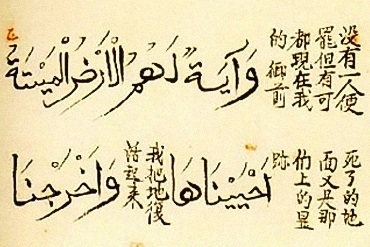 没有一人使
罷但有可
都現在我
的御前
وَآيَةٌ لَهُمُ الْأَرْضُ الْمَيْتَةُ
死了的地
面又是那
们上的显
跡
أَحْيَيْنَاهَا
我把地復
活起来
وَأَخْرَجْنَا